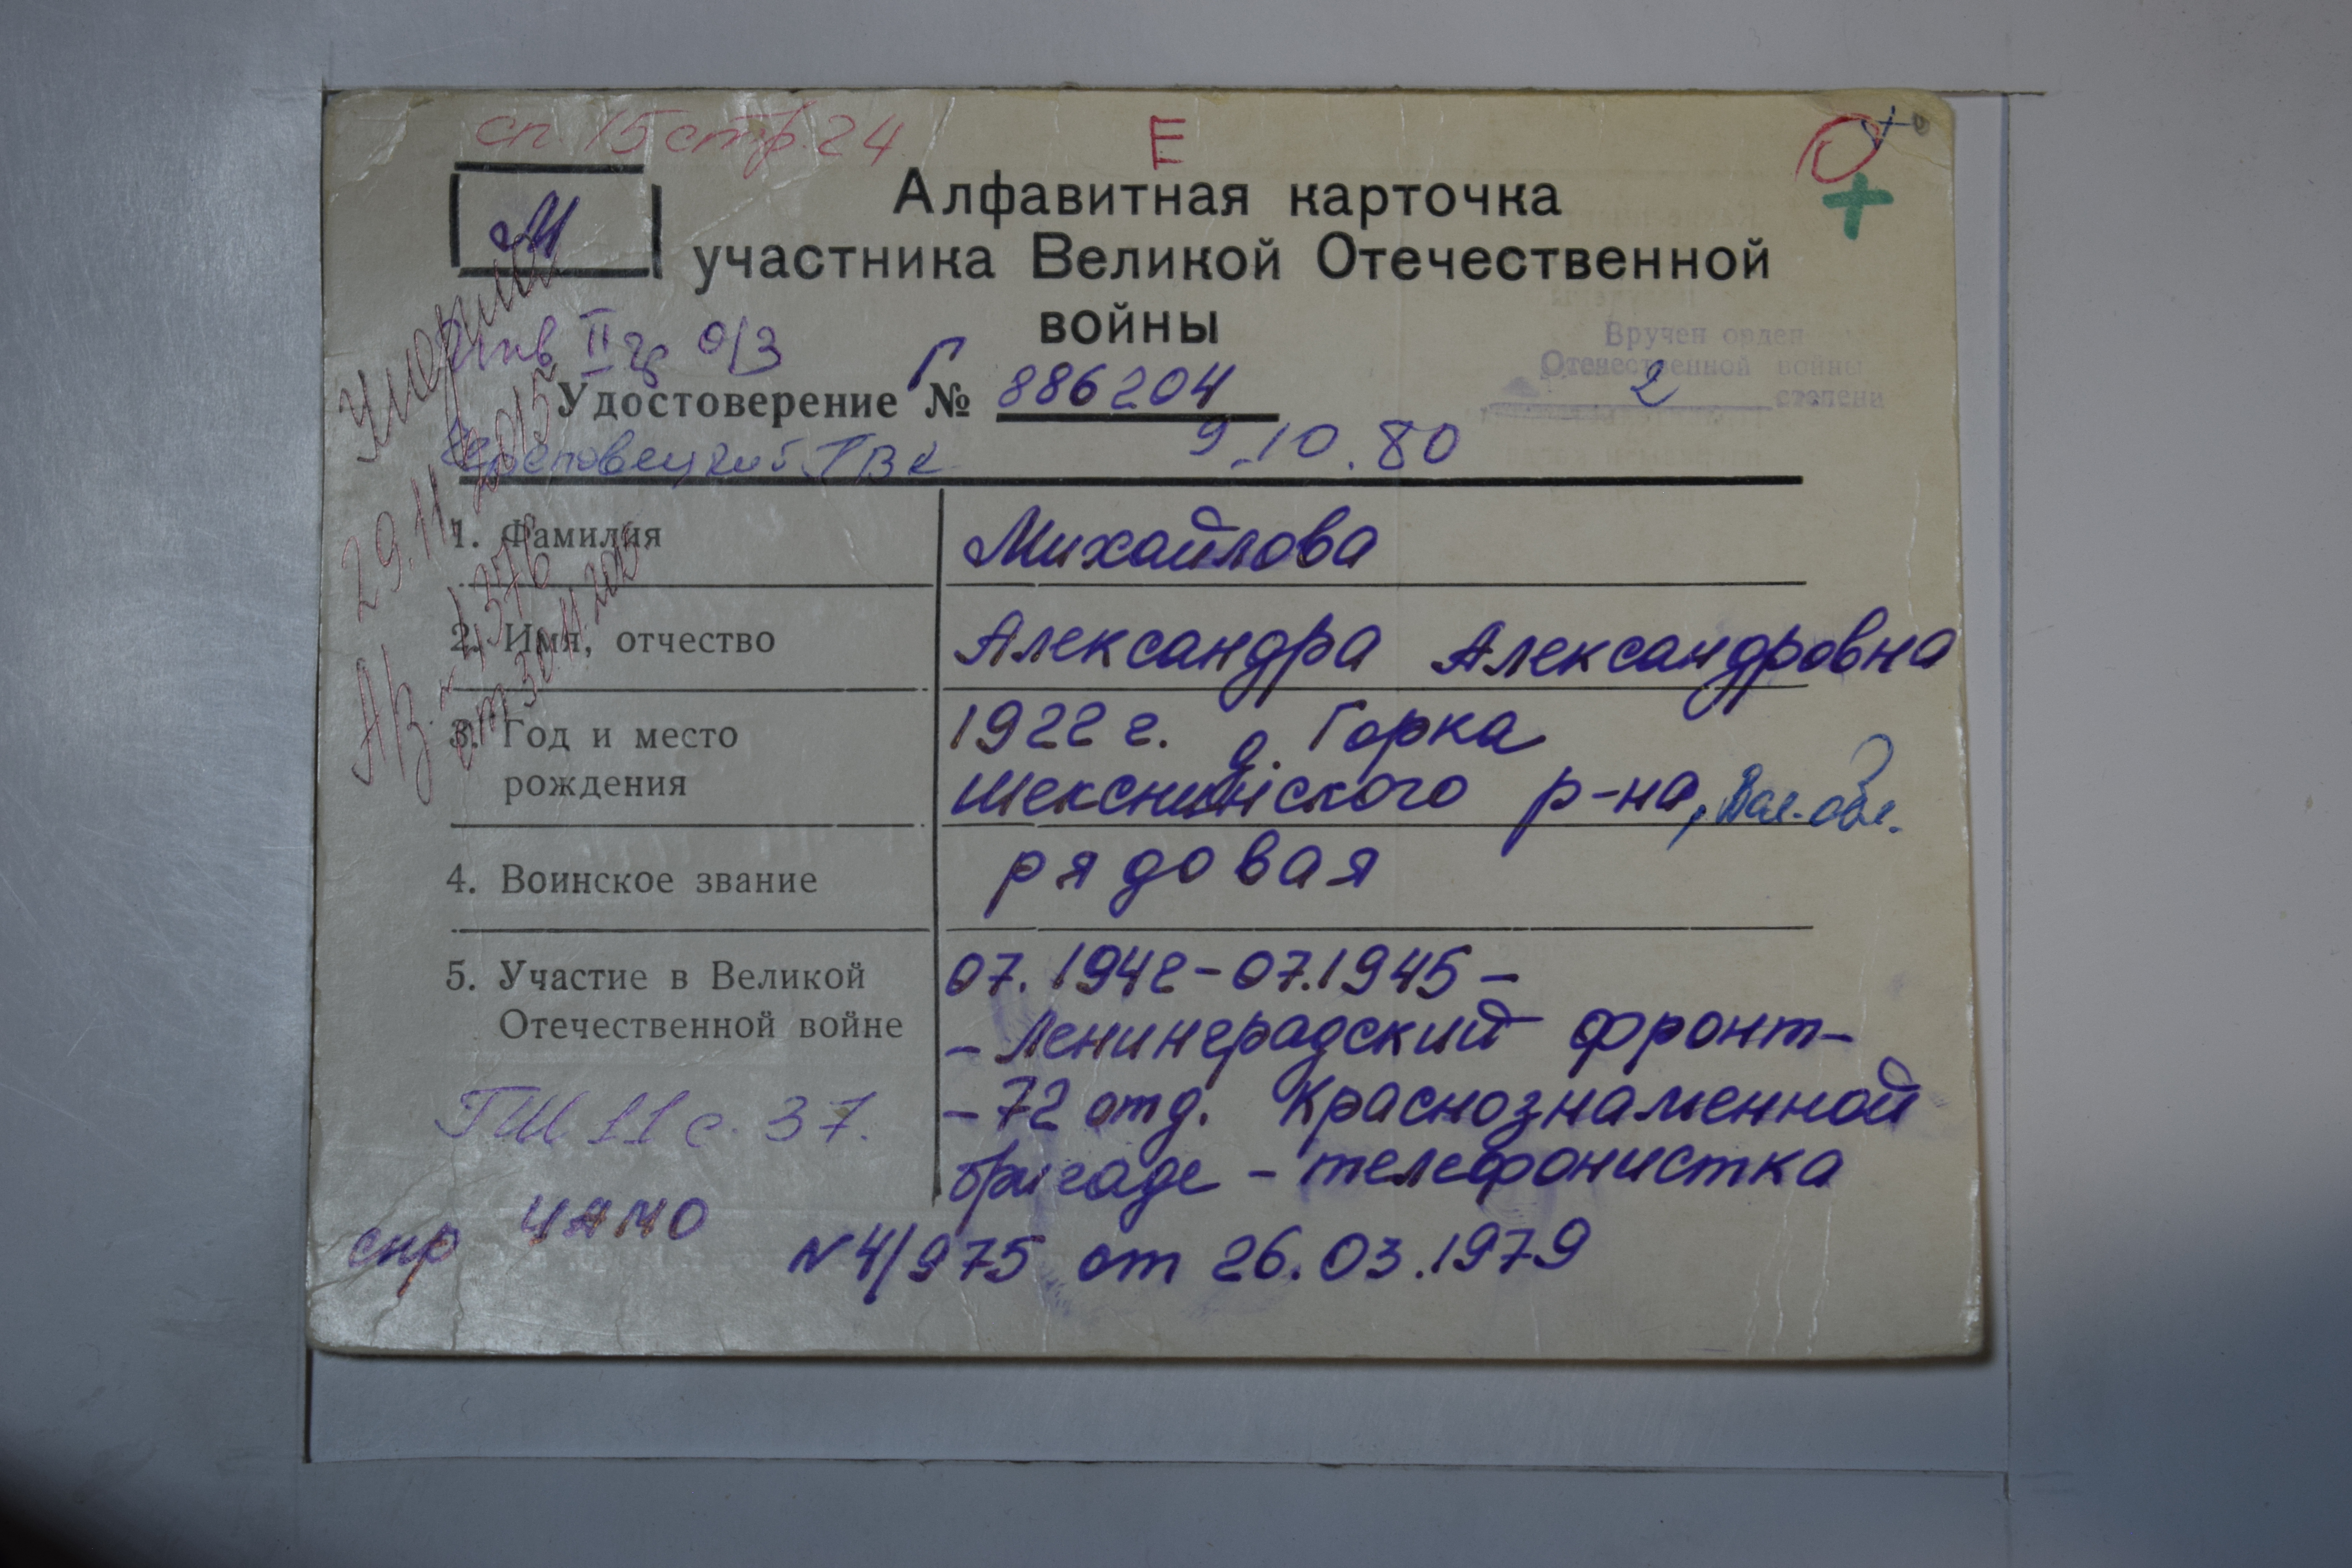 сп. 15 стр. 24
Е
М
Алфавитная карточка
участника Великой Отечественной
войны
II гр о/з
Вручен орден
Отечественной войны
2 степени
Удостоверение Г № 886204
Череповецкий ГВК 9.10.80
Умерла
29.11.2015
АЗ. № 1376
от 30.11.2015
1. Фамилия Михайлова
2. Имя, отчество Александра Александровна
3. Год и место 1922 г. д. Горка
рождения Шекснинского р-на, Вол. обл.
4. Воинское звание рядовая
5. Участие в Великой 07.1942-07.1945-
Отечественной войне - Ленинградский фронт-
- 72 отд. Краснознаменной
бригаде - телефонистка
ГШ 11 с. 37.
спр ЦАМО N 4/975 от 26.03.1979